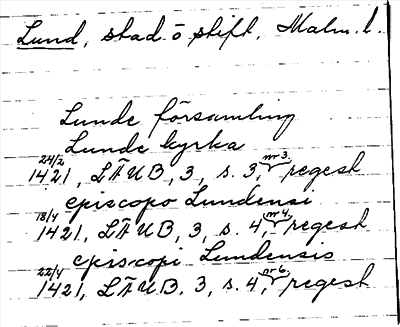 Lund, stad o stift, Malm. l.
Lunde församling
Lunde kyrka
24/2 1421, LÄUB, 3, s. 3, nr 3. regest
episcopo Lundensi
18/4 1421, LÄUB, 3, s. 4, nr 4, regest
episcopi Lundensis
22/4 1421, LÄUB. 3, s. 4, nr 6, regest